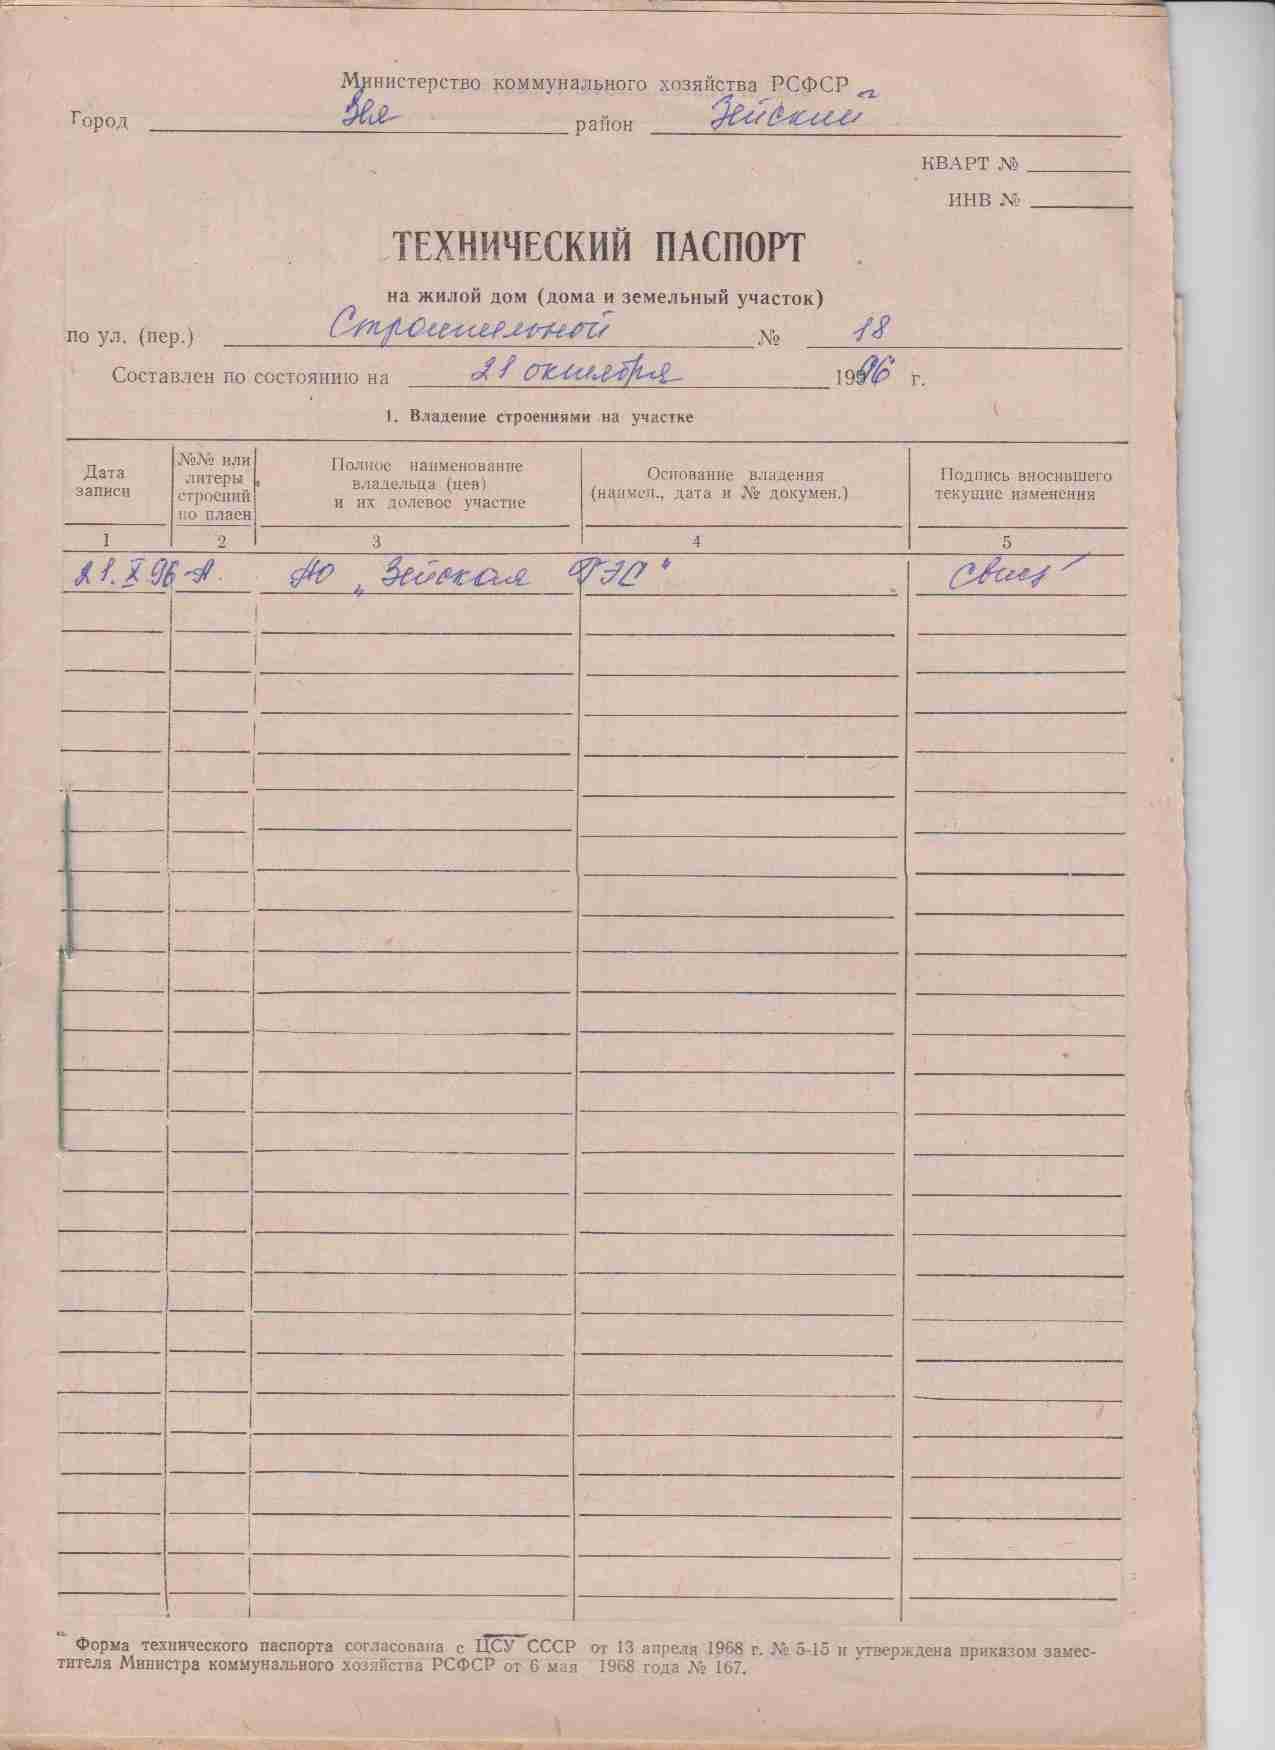 Министерство коммунального хозяйства РСФСР
Город Зея район Зейский
КВАРТ №
ИНВ №
ТЕХНИЧЕСКИЙ ПАСПОРТ
на жилой дом (дома и земельный участок)
по ул. (пер.) Строительной № 18
Составлен по состоянию на 21 октября 1996 г.
1. Владение строениями на участке
Дата записи
№№ или литеры строений по плаен
Полное наименование владельца (цев) и их долевое участие
Основание владения (наимен., дата и № докумен.)
Подпись вносившего текущие изменения
1 2 3 4 5
21.X 96 А. АО „Зейская ГЭС"
Форма технического паспорта согласована с ЦСУ СССР от 13 апреля 1968 г. № 5-15 и утверждена приказом замес-
тителя Министра коммунального хозяйства РСФСР от 6 мая 1968 года № 167.